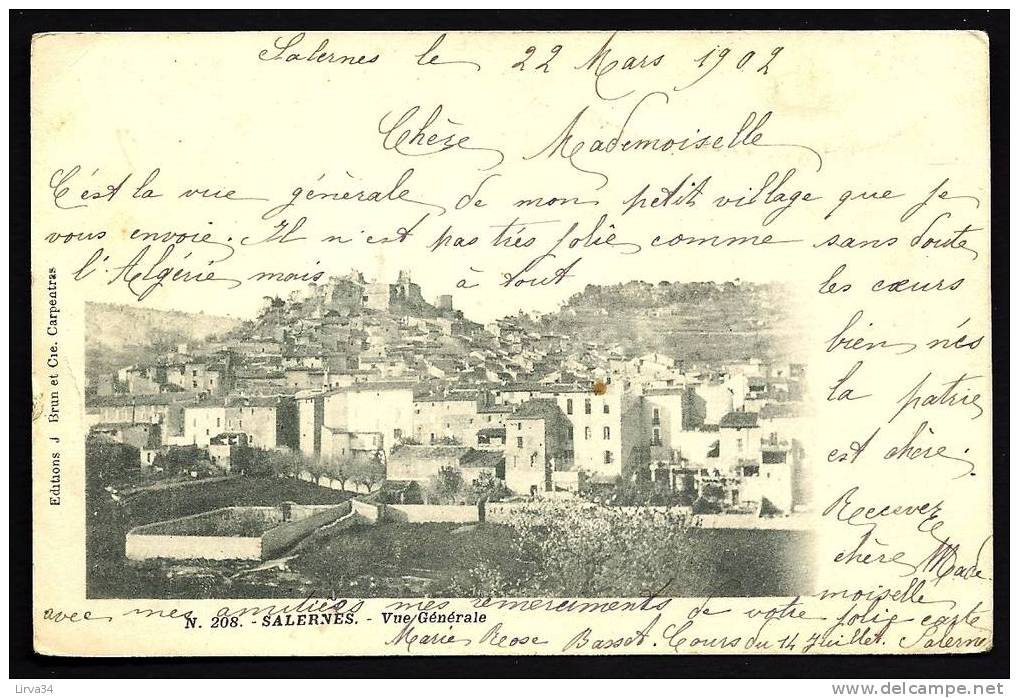 Salernes le 22 Mars 1902
Chère Mademoiselle
C'est la vue générale de mon petit village que je
vous envoie. Il n'est pas très jolie comme sans doute
l'Algérie mais à tout
les cœurs
bien nés
la patrie
est chère.
Recevez
chère Made
moiselle
avec mes amitiés mes remerciments de votre jolie carte
Marie Rose Bassot. Cours du 14 Juillet. Salernes
N. 208. - SALERNES. - Vue Générale
Editions J Brun et Cie. Carpentras
Lirva34
www.delcampe.net